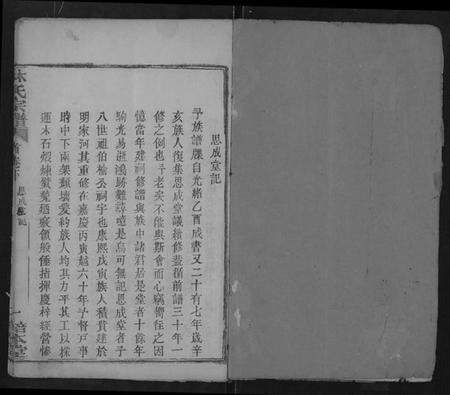 思成堂記
予族譜牒自光緒乙酉成書又二十有七年歲辛
亥族人復集思成堂議續修蓋循前譜三十年一
修之例也予老矣不能與斯會而心竊嚮往之因
憶當年建祠修譜與族中諸君居是堂者十餘年
駒光易逝鴻跡難尋噫是烏可無記思成堂者予
八世祖伯榆公祠宇也康熙戊寅族人積貲建於
明家河其重修在嘉慶丙寅越六十年予督戶事
時中下兩架頹壞爰約族人均其力平其工以採
運木石煅煉甓甃過竅領般倕指揮慶梓經營慘
林氏宗譜
首卷下
思成堂記
一
敦本堂